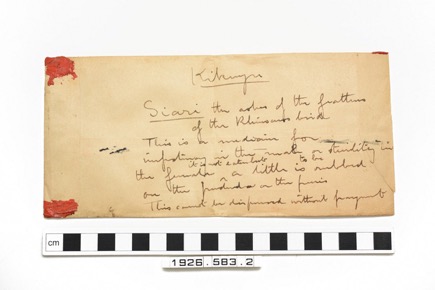 Kikuyu
Siari the ashes of the feathers
of the Rhinoceros bird
This is a medicine for
impotence in the male or sterility in
the female a little is rubbed
on the pudenda or the penis
This cannot be dispensed without payment
cm
1926.583.2